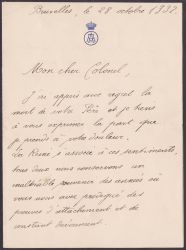 Bruxelles, le 28 octobre 1932
Mon cher Colonel,
J'ai appris avec regret la
mort de votre Père et je tiens
à vous exprimer la part que
je prends à votre douleur.
La Reine s'associe à ces sentiments,
tous deux nous conservons un
souvenir des
où
vous nous avez prodigué des
preuves d'attachement et de
constant dévouement.